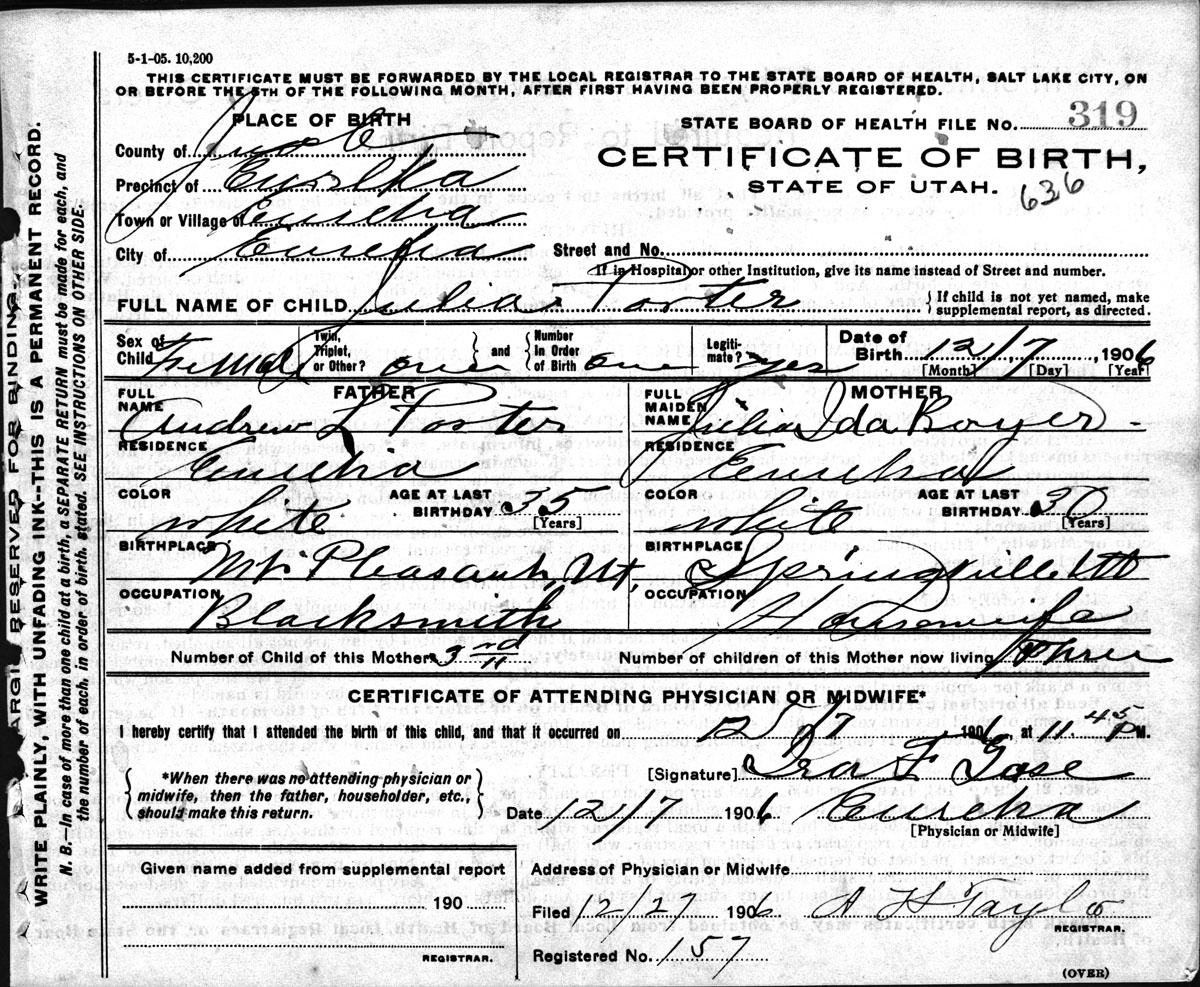 5-1-05. 10,200
THIS CERTIFICATE MUST BE FORWARDED BY THE LOCAL REGISTRAR TO THE STATE BOARD OF HEALTH, SALT LAKE CITY, ON
OR BEFORE THE 5TH OF THE FOLLOWING MONTH, AFTER FIRST HAVING BEEN PROPERLY REGISTERED.
PLACE OF BIRTH
STATE BOARD OF HEALTH FILE No. 319
County of Juab
CERTIFICATE OF BIRTH,
STATE OF UTAH.
636
Precinct of Eureka
Town or Village of Eureka
City of Eureka
Street and No.
If in Hospital or other Institution, give its name instead of Street and number.
FULL NAME OF CHILD Julia Porter
{If child is not yet named, make
supplemental report, as directed.
Sex of Child Female
Twin, Triplet, or Other? one } and { Number In Order of Birth one
Legitimate? yes
Date of Birth 12/7, 1906
[Month] [Day] [Year]
FATHER
FULL NAME Andrew L Porter
RESIDENCE Eureka
COLOR white
AGE AT LAST BIRTHDAY 35
[Years]
BIRTHPLACE Mt. Pleasant, Ut,
OCCUPATION Blacksmith
MOTHER
FULL MAIDEN NAME Julia Ida Boyer
RESIDENCE Eureka
COLOR white
AGE AT LAST BIRTHDAY 30
[Years]
BIRTHPLACE Springville Ut
OCCUPATION Housewife
Number of Child of this Mother 3rd
Number of children of this Mother now living Three
CERTIFICATE OF ATTENDING PHYSICIAN OR MIDWIFE*
I hereby certify that I attended the birth of this child, and that it occurred on 12/7 1906, at 11.45 P M.
{*When there was no attending physician or
midwife, then the father, householder, etc.,
should make this return.}
[Signature]
Date 12/7 1906 Eureka
[Physician or Midwife]
Given name added from supplemental report
190
REGISTRAR.
Address of Physician or Midwife
Filed 12/27 1906 A H Taylor
REGISTRAR.
Registered No. 157
(OVER)
MARGIN RESERVED FOR BINDING
WRITE PLAINLY, WITH UNFADING INK--THIS IS A PERMANENT RECORD.
N. B.--In case of more than one child at a birth, a SEPARATE RETURN must be made for each, and
the number of each, in order of birth, stated. SEE INSTRUCTIONS ON OTHER SIDE.